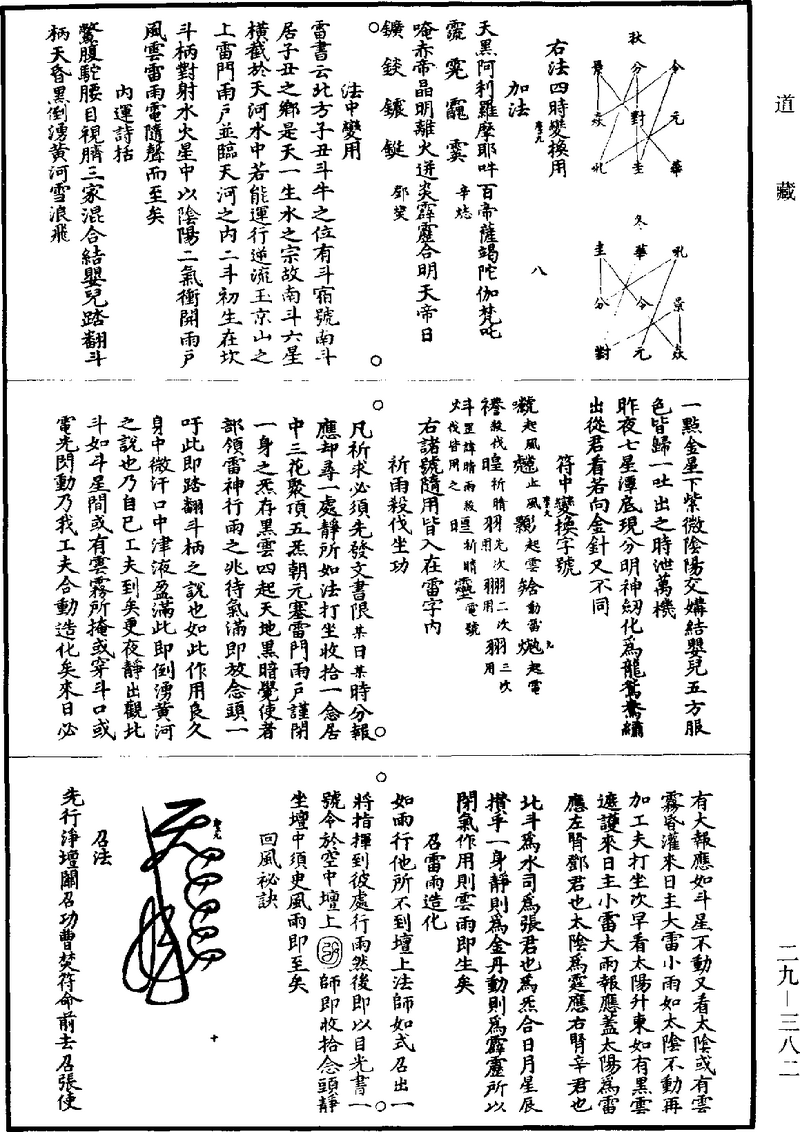 道藏
秋
令 分 景
元 對 焱
華 圭 吼
冬
吼 華 圭
景 令 分
焱 元 對
右法四時變換用
加法
天黑阿利羅摩耶吽百帝薩竭陀伽梵吒
辛㷓
唵赤帝晶明離火迸炎霹靂合明天帝日
鄧燮
法中變用
雷書云北方子丑斗牛之位有斗宿號南斗
居子丑之鄉是天一生水之宗故南斗六星
橫截於天河水中若能運行逆流玉京山之
上雷門雨戶並臨天河之內二斗初生在坎
斗柄對射水火星中以陰陽二氣衝開雨戶
風雲雷雨電隨聲而至矣
內運詩括
鱉腹駝腰目視臍三家混合結嬰兒踏翻斗
柄天昏黑倒湧黃河雪浪飛
一點金星下紫微陰陽交媾結嬰兒五方服
色皆歸一吐出之時泄萬機
昨夜七星潭底現分明神劒化為龍鴛鴦繡
出從君看若向金針又不同
符中變換字號
起風 止風 起雲 動雷 起電
殺伐 祈晴 先次用 二次用 三次用
祈晴 電號
伐皆用之
右諸號隨用皆入在雷字內
祈雨殺伐坐功
凡祈求必須先發文書限某日某時分報
應却尋一處靜所如法打坐收拾一念居
中三花聚頂五炁朝元塞雷門雨戶謹閉
一身之炁存黑雲四起天地黑暗覺使者
部領雷神行雨之兆待氣滿即放念頭一
吁此即踏翻斗柄之說也如此作用良久
身中微汗口中津液盈滿此即倒湧黃河
之說也乃自己工夫到矣更夜靜出觀北
斗如斗星間或有雲霧所掩或穿斗口或
電光閃動乃我工夫合動造化矣來日必
有大報應如斗星不動又看太陰或有雲
霧昏灌來日主大雷小雨如太陰不動再
加工夫打坐次早看太陽升東如有黑雲
遮護來日主小雷大雨報應蓋太陽為雷
應左腎鄧君也太陰為霆應右腎辛君也
北斗為水司為張君也為炁合日月星辰
攢乎一身靜則為金丹動則為霹靂所以
閉氣作用則雲雨即生矣
召雷雨造化
如雨行他所不到壇上法師如式召出一
將指揮到彼處行雨然後即以目光書一
號令於空中壇上 師即收拾念頭靜
坐壇中須臾風雨即至矣
回風祕訣
召法
先行淨壇關召功曹焚符命前去召張使
二九—三八二